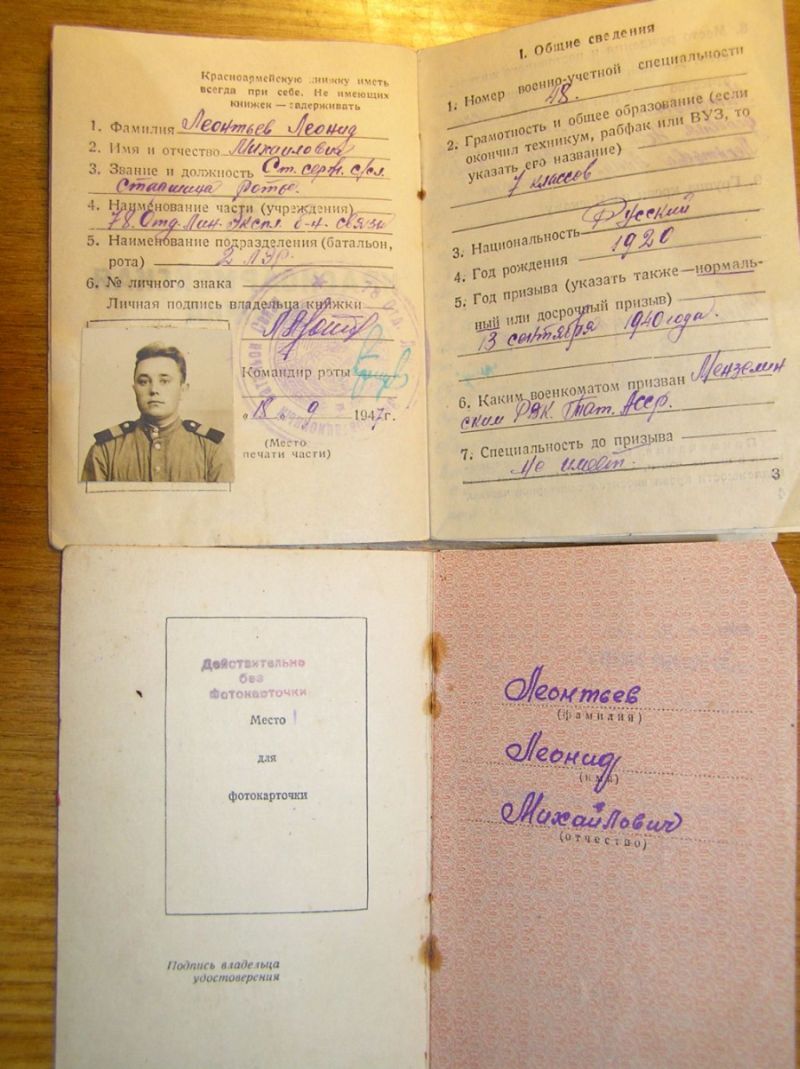 Красноармейскую книжку иметь
всегда при себе. Не имеющих
книжек — задерживать
1. Фамилия Леонтьев Леонид
2. Имя и отчество Михайлович
3. Звание и должность Ст. серж. с/сл.
Старшина роты.
4. Наименование части (учреждения)
78. Отд. Лин. Экспл. б-н. связи
5. Наименование подразделения (батальон,
рота) 2 ЛЭР.
6. № личного знака
Личная подпись владельца книжки
Командир роты
„18 „ 9 1947г.
(Место
печати части)
I. Общие сведения
1. Номер военно-учетной специальности
48.
2. Грамотность и общее образование (если
окончил техникум, рабфак или ВУЗ, то
указать его название)
7 классов
3. Национальность Русский
4. Год рождения 1920
5. Год призыва (указать также — нормаль-
ный или досрочный призыв)
13 сентября 1940 года.
6. Каким военкоматом призван Мензелин
ским РВК Тат. АССР.
7. Специальность до призыва
Не имеет.
3
Действительно
без
фотокарточки
Место
для
фотокарточки
Подпись владельца
удостоверения
Леонтьев
(фамилия)
Леонид
(имя)
Михайлович
(отчество)